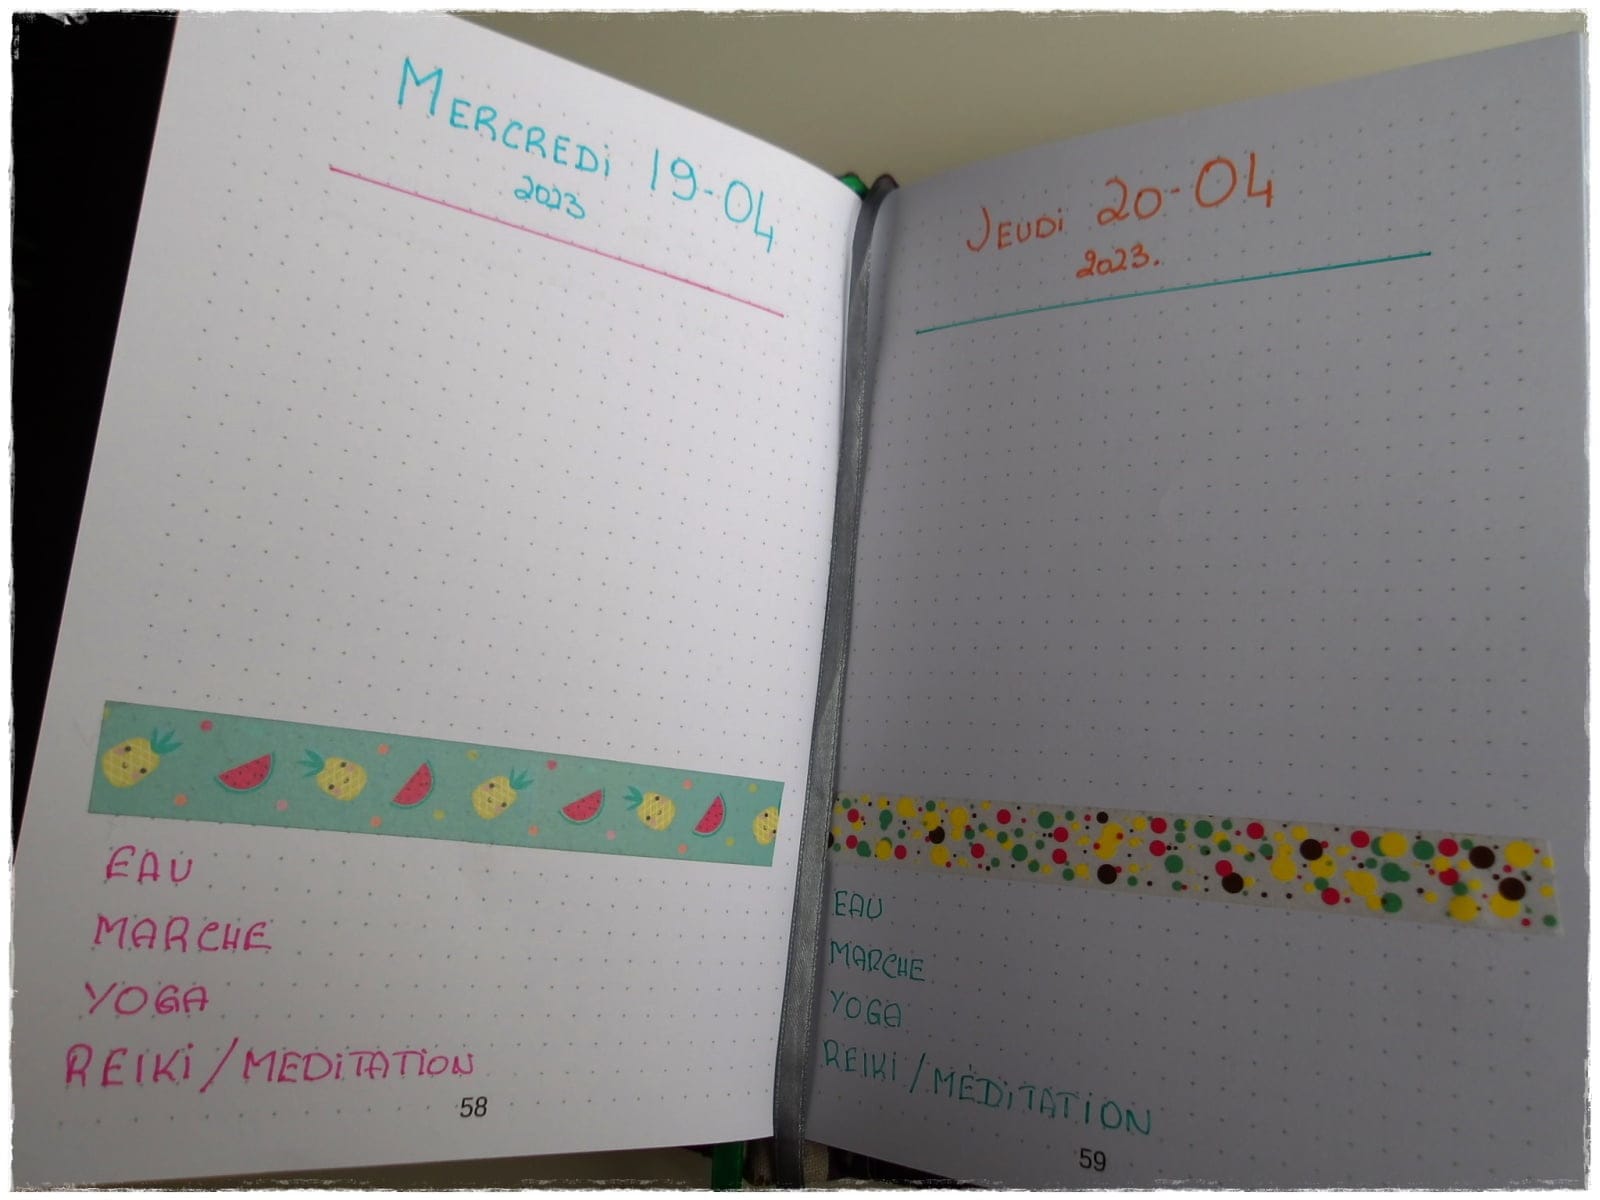 MERCREDi 19-04
2023
EAU
MARCHE
YOGA
REIKi / MEDiTATION
58
JEUDi 20-04
2023.
EAU
MARCHE
YOGA
REIKI / MÉDiTATION
59